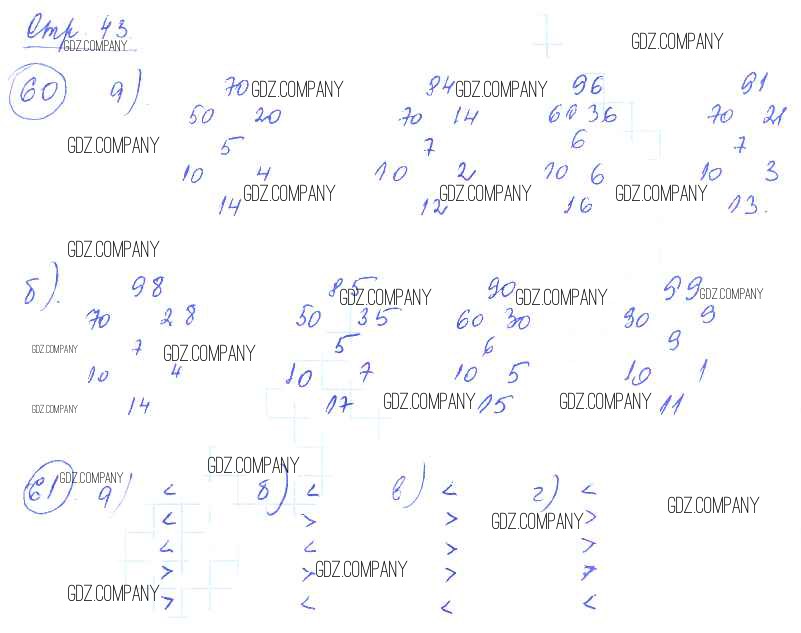 Стр. 43
GDZ.COMPANY GDZ.COMPANY
60 а). 70 GDZ.COMPANY 84 GDZ.COMPANY 96 91
50 20 70 14 60 36 70 21
GDZ.COMPANY 5 7 6 7
10 4 10 2 10 6 10 3
14 GDZ.COMPANY 12 GDZ.COMPANY 16 GDZ.COMPANY 13.
GDZ.COMPANY
б). 98 85 GDZ.COMPANY 90 GDZ.COMPANY 99 GDZ.COMPANY
70 28 50 35 60 30 90 9
GDZ.COMPANY 7 GDZ.COMPANY 5 6 9
10 4 10 7 10 5 10 1
GDZ.COMPANY 14 17 GDZ.COMPANY 15 GDZ.COMPANY 11
GDZ.COMPANY GDZ.COMPANY
61. а) < б) < в) < г) < GDZ.COMPANY
< > > GDZ.COMPANY >
< < > >
> > GDZ.COMPANY > >
GDZ.COMPANY > < < <